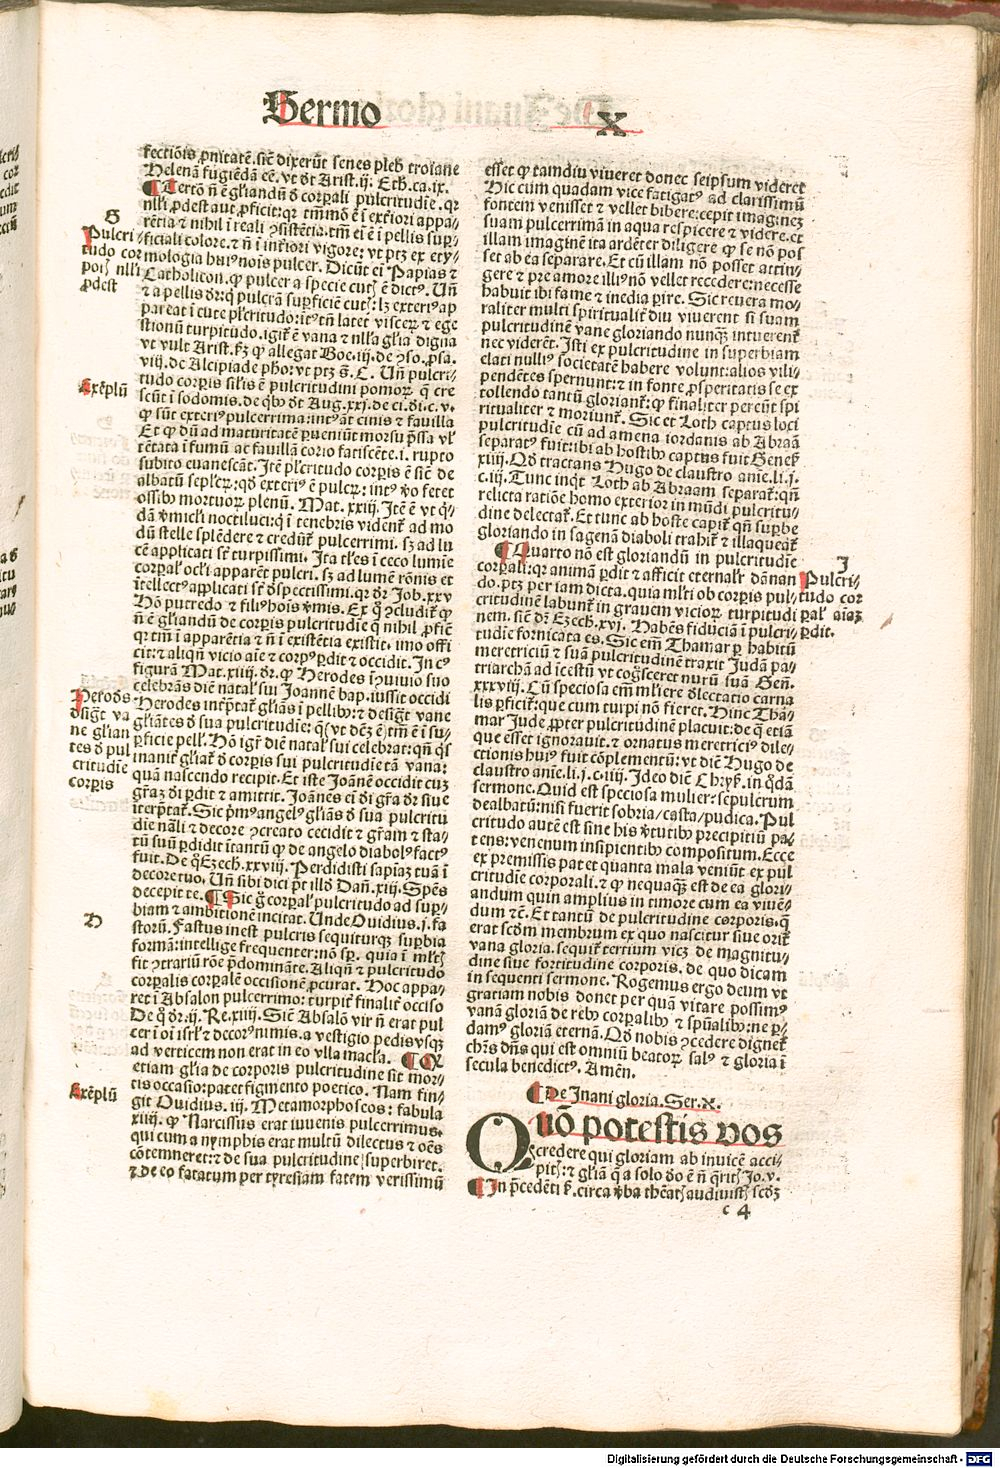 Sermo X
fectiõis ꝓnitatẽ. sic̃ dixerũt senes pleb̃ troiane
Helenã fugiẽdã eẽ. vt dt Arist. ij. Eth. ca. ix.
¶ Tertõ ñ ẽ gl̃iandũ ð corꝑali pulcritudíe. qꝛ
nl̃l ꝓdest aut ꝓficit: qꝛ tm̃mõ ẽ ĩ exteriori appa/
rẽtia ⁊ nihil ĩ reali exñstẽtia. tm̃ ei̇ ẽ ĩ pellis suꝑ/
ficiali colore. ⁊ ñ ĩ ĩteriori vigore: vt ptꝫ ex ety/
mologia huiꝰ nois pulcer. Dicũt ei̇ Papias ⁊
Catholicon. ꝙ pulcer a specie cut̃ ẽ dictꝰ. Uñ
⁊ a pellis dꝛ: qꝫ pulcrã suꝑficiẽ cut̃: lꝫ exteriꝰ ap
pareat ĩ cute pl̃critudo: ĩtꝰ tñ latet viscerꝫ ⁊ ege
stionũ turpitudo. igit̃ ẽ vana ⁊ nl̃la gl̃ia digna
vt vult Arist. ẜꝫ ꝙ allegat Boe. iij. de ↄso. ꝓsa.
viij. de Alcipiade pho: vt ptꝫ s̃. C. Uñ pulcri/
tudo corꝑis sil̃is ẽ pulcritudini pomoꝝ q̃ cre
scũt ĩ sodomis. de qb̃ dt Aug. xxj. de ci. di. c. v.
ꝙ sũt exteriꝰ pulcerrima: intꝰ aũt cinis ⁊ fauilla
Et ꝙ dũ ad maturitatẽ ꝑueniũt morsu p̃ssa vl̃
tẽtata ĩ fumũ ac fauillã corio fatiscẽte. i. rupto
subito euanescãt. Itẽ pl̃critudo corꝑis ẽ sic̃ de
albatũ sepl̃cꝝ: qd̃ exteriꝰ ẽ pulcꝝ: intꝰ v̊o fetet
ossib̃ mortuoꝝ plenũ. Mat. xxiij. Itẽ ẽ vt q̃/
dã v̊micl̃i noctiluci: q ĩ tenebris vident̃ ad mo
dũ stelle splẽdere ⁊ credũt̃ pulcerrimi. sꝫ ad lu
cẽ applicati st̃ turpissimi. Ita tl̃es ĩ ceco lumie
corꝑal̃ ocl̃i apparẽt pulcri. sꝫ ad lumẽ rõnis et
ĩtellectꝰ applicati st̃ ðspectissimi. qꝛ dꝛ Job. xxv
Hõ putredo ⁊ filiꝰ hois v̊mis. Ex q̊ ↄcludit̃ ꝙ
ñ ẽ gl̃iandũ de corꝑis pulcritudie q̃ nihil ꝓficẽ
qꝛ tm̃ ĩ apparẽtia ⁊ ñ ĩ existẽtia existit. imo offi
cit: ⁊ aliqñ vicio aie ⁊ corpꝰ ꝑdit ⁊ occidit. In cꝰ
figurã Mat. xiiij. dꝛ. ꝙ Herodes ĩ ↄuiuio suo
celebrãs diẽ natal̃ sui Joannẽ bap. iussit occidi
Herodes intꝑtat̃ gl̃iãs ĩ pellib̃: ⁊ desig̃t vane
gl̃iãtes ð sua pulcritudie: q̃ (vt dc̃ꝫ ẽ) tm̃ ẽ ĩ su/
ꝑficie pell̃. Hõ igĩt diẽ natal̃ sui celebrat: qñ qs
inanit̃ gl̃iat̃ ð corꝑis sui pulcritudie tã vana:
quã nascendo recipit. Et iste Joãnẽ occidit cuꝫ
gr̃aꝫ di ꝑdit ⁊ amittit. Joãnes ei̇ di gr̃a dꝛ siue
ĩterꝑtat̃. Sic pm̃ꝰ angelꝰ gl̃iãs ð sua pulcritu
die nal̃i ⁊ decore ↄcreato cecidit ⁊ gr̃am ⁊ sta/
tũ suũ ꝑdidit ĩtantũ ꝙ de angelo diabolꝰ factꝰ
fuit. De q̊ Ezech. xxviij. Perdidisti sapiaꝫ tuã ĩ
decore tuo. Uñ sibi dici pt illð Dañ. xiij. Spẽs
decepit te. ¶ Sic g̊ corꝑal̃ pulcritudo ad suꝑ/
biam ⁊ ambitionẽ incitat. Unde Ouidius. j. fa
storũ. Fastus inest pulcris sequiturqꝫ suꝑbia
formã: intellige frequenter: nõ sꝑ. quia ĩ ml̃tꝭ
fit ↄtrariũ rõe p̃dominãte. Aliqñ ⁊ pulcritudo
corꝑalis corꝑalẽ occisionẽ ꝓcurat. Hoc appa/
ret ĩ Absalon pulcerrimo: turpit̃ finalit̃ occiso
De q̊ dꝛ. ij. Re. xiiij. Sic̃ Absalõ vir ñ erat pul
cer ĩ oi isrl̃ ⁊ decorꝰ nimis. a vestigio pedis vsqꝫ
ad verticem non erat in eo vlla macl̃a. ¶ Qꝙ
etiam gl̃ia de corporis pulcritudine sit mor/
tis occasio: patet figmento poetico. Nam fin/
git Ouidius. iij. Metamorphoseos: fabula
xiiij. ꝙ Narcissus erat iuuenis pulcerrimus.
qui cum a nymphis erat multũ dilectus ⁊ oẽs
cõtemneret: ⁊ de sua pulcritudine superbiret.
⁊ de eo fatatum per tyresiam fatem verissimũ
G
Pulcri-
tudo cor
poꝭ nl̃l
ꝓdest
Exẽplũ
Herods
ðsig̃t va
ne gl̃ian
tes ð pul
critudie
corꝑis
H
Exẽplũ
esset ꝙ tamdiu viueret donec seipsum videret
Hic cum quadam vice fatigatꝰ ad clarissimũ
fontem venisset ⁊ vellet bibere: cepit imaginẽ
suam pulcerrimã in aqua respicere ⁊ videre. et
illam imaginẽ ita ardẽter diligere ꝙ se nõ pos
set ab ea separare. Et cũ illam nõ posset attin/
gere ⁊ pre amore illiꝰ nõ vellet recedere: necesse
habuit ibi fame ⁊ inedia ꝑire. Sic reuera mo/
raliter multi spiritualit̃ diu viuerent si suam
pulcritudinẽ vane gloriando nunqꝫ intuerent̃
nec viderẽt. Isti ex pulcritudine in superbiam
elati nulliꝰ societatẽ habere volunt: alios vili/
pendẽtes spernunt: ⁊ in fonte ꝓsperitatis se ex
tollendo tantũ gloriant̃: ꝙ finaliter pereũt spi
ritualiter ⁊ moriunt̃. Sic et Loth captus loci
pulcritudie cũ ad amena iordanis ab Abraã
separatꝰ fuit: ibi ab hostib̃ captus fuit Geneẜ
xiiij. Qð tractans Hugo de claustro anie. li. j.
c. iij. Tunc inqt Loth ab Abraam separat̃: qñ
relicta ratiõe homo exterior in mũdi pulcritu/
dine delectat̃. Et tunc ab hoste capit̃ qñ suꝑbe
gloriando in sagenã diaboli trahit̃ ⁊ illaqueat̃
¶ Quarto nõ est gloriandũ in pulcritudie
corꝑali: qꝛ animam ꝑdit ⁊ afficit eternalr̃ dãnan
do. ptꝫ per iam dicta. quia ml̃ti ob corꝑis pul/
critudinẽ labunt̃ in grauem vicioꝝ turpitudi
nem. sic̃ dꝛ Ezech. xvj. Habẽs fiduciã ĩ pulcri/
tudie fornicata es. Sic em̃ Thamar ꝑ habitũ
meretriciũ ⁊ suã pulcritudinẽ traxit Judã pa/
triarchã ad ĩcestũ vt cog̊sceret nurũ suã Geñ.
xxxviij. Cũ speciosa em̃ ml̃iere ðlectatio carna
lis ꝑficit̃: que cum turpi nõ fieret. Hinc Tha/
mar Jude ꝓpter pulcritudinẽ placuit: de q̊ etiã
que esset ignorauit. ⁊ ornatus meretriciꝰ dile/
ctionis huiꝰ fuit cõplementũ: vt dic̃ Hugo de
claustro anie. li. j. c. iiij. Ideo dic̃ Chryẜ. in q̊dã
sermone. Quid est speciosa mulier: sepulcrum
dealbatũ: nisi fuerit sobria/ casta/ pudica. Pul
critudo autẽ est sine his v̊tutib̃ precipitiũ pa/
tens: venenum insipientib̃ compositum. Ecce
ex premissis patet quanta mala veniũt ex pul
critudie corporali. ⁊ ꝙ nequaqꝫ est de ea glori/
andum quin amplius in timore cum ea viuẽ/
dum ⁊c̃. Et tantũ de pulcritudine corporis. q̃
erat scðm membrum ex quo nascitur siue orit̃
vana gloria. sequit̃ tertium vicꝫ de magnitu/
dine siue fortitudine corporis. de quo dicam
in sequenti sermone. Rogemus ergo deum vt
gratiam nobis donet per quã vitare possimꝰ
vanã gloriã de reb̃ corꝑalib̃ ⁊ spũalib̃: ne ꝑ/
damꝰ gloriã eternã. Qð nobis ↄcedere dignet̃
chr̃s dñs qui est omniũ beatoꝝ salꝰ ⁊ gloria ĩ
secula benedictꝰ. Amẽn.
¶ De Inani gloria. Ser. x.
Quõ potestis vos
credere qui gloriam ab inuicẽ acci-
pitꝭ: ⁊ gl̃ia q̃ a solo ðo ẽ ñ q̃ritꝭ Jo. v.
¶ In p̃cedẽti ẜ. circa v̊ba thẽatꝭ audiuistꝭ scðꝫ
J
Pulcri-
tudo cor
ꝑal̃ aiaꝫ
ꝑdit.
c 4
Digitalisierung gefördert durch die Deutsche Forschungsgemeinschaft - DFG